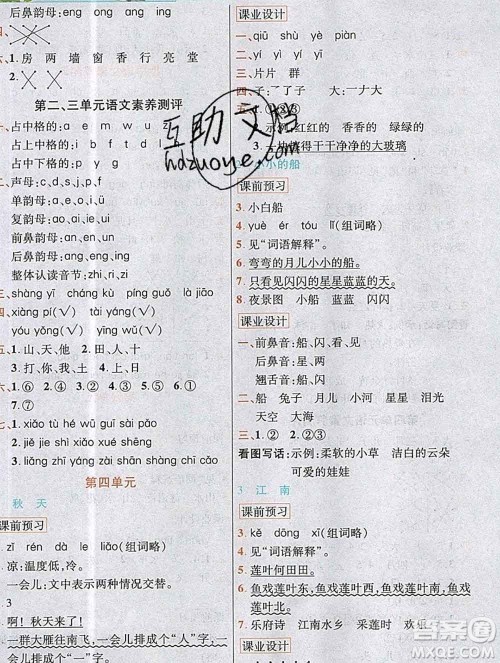 后鼻韵母：eng ong ang ing
四、
1. 房 两 墙 窗 香 行 亮 堂
2.
第二、三单元语文素养测评
占中格的：a e m w u o
占上中格的：i b f t d l
占中下格的：p y g
二、声母：c,d,s,j,p,f
单韵母：a,o,e,i,u,ü
复韵母：ai,ou,ei,iu,ui
前鼻韵母：an,en,un
后鼻韵母：ang,eng,ong
整体认读音节：zhi,ri,zi
三、shàng yī cháng kù píng guǒ là jiāo
四、xiàng pí(√) táng guǒ(√)
yóu yǒng(√) xiǎo yáng(√)
五、1. 山、天、他 2. 田、人、十
3. 打、你、我、土
六、1. ⑥ 2. ④ 3. ② 4. ① 5. ③ 6. ⑤
7. ⑦
1. xiǎo tù hé wū guī sài pǎo
2. jiě jie shì xiǎo xué shēng
3. liǎng zhī yáng zài shān shàng chī cǎo
第四单元
秋 天
课前预习
zī rén dà le liǎo(组词略)
凉：温度低，冷。
一会儿：文中表示两种情况交替。
3
啊！秋天来了！
一群大雁往南飞，一会儿排成个“人”字，
一会儿排成个“一”字。
课业设计
一、qiū shù yè piàn
二、yí yì yī yí
三、片片 群 群
四、子：了了子子 大：一ナ大
五、1.
示例：红红的 香香的 绿绿的
3. 一块擦得干干净净的大玻璃
小小的船
课前预习
3. 小白船
4. yuè ér tóu lǐ(组词略)
5. 见“词语解释”。
6. 弯弯的月儿小小的船。
7. 只看见闪闪的星星蓝蓝的天。
8. 夜景图 小船 蓝蓝 闪闪
课业设计
一、前鼻音：船、闪、看、见
后鼻音：星、两
翘舌音：船、闪
二、船 兔子 月儿 小河 星星 泪光
天空 大海
三、②①③
看图写话：示例：柔软的小草 洁白的云朵
可爱的娃娃
3 江南
课前预习
3. kě dōng xī(组词略)
4. 见“词语解释”。
5. 莲叶何田田。
6. 鱼戏莲叶东，鱼戏莲叶西，鱼戏莲叶南，
鱼戏莲叶北。
7. 乐府诗 江南水乡 采莲时 欢乐